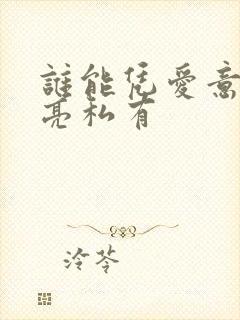 誰能凭愛意
亮私有
冷苓